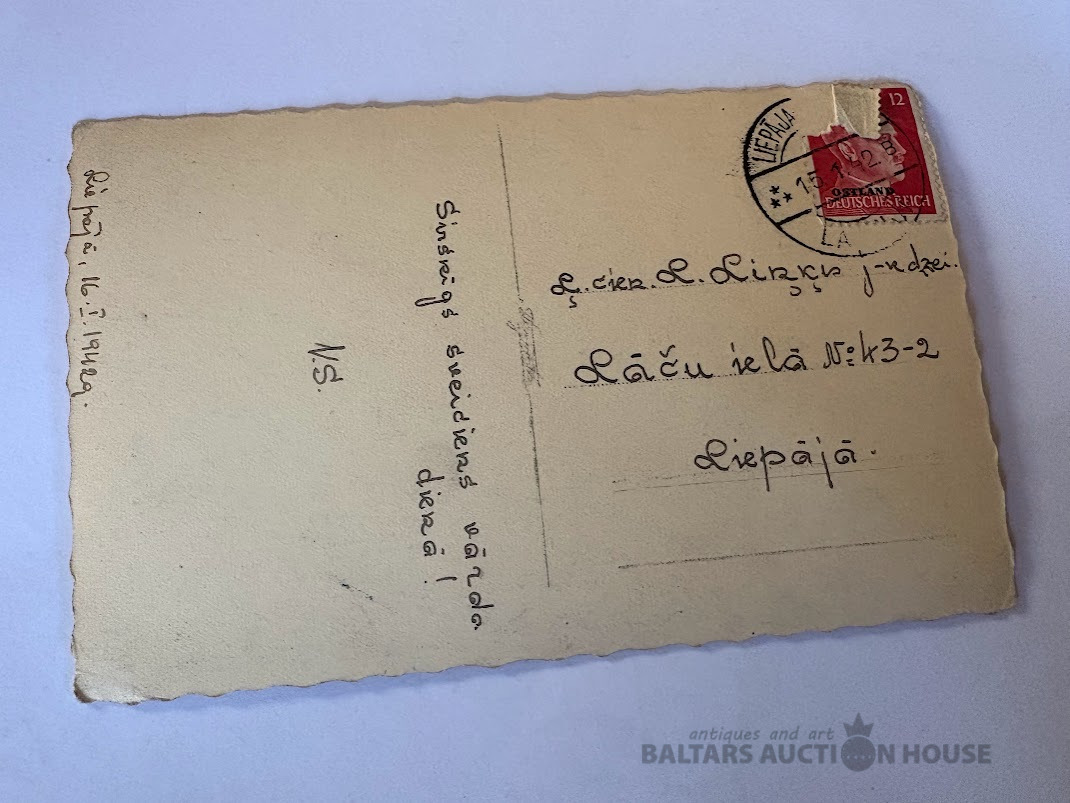 Sirsnīgs sveiciens vārda
dienā!
N.S.
Liepājā, 16.I.1942g.
LIEPĀJA
15.1.42
B
LA
12
OSTLAND
DEUTSCHES REICH
Ļ. cien. L. j-k dzei.
Lāču ielā №43-2
Liepājā.
antiques and art
BALTARS AUCTION HOUSE